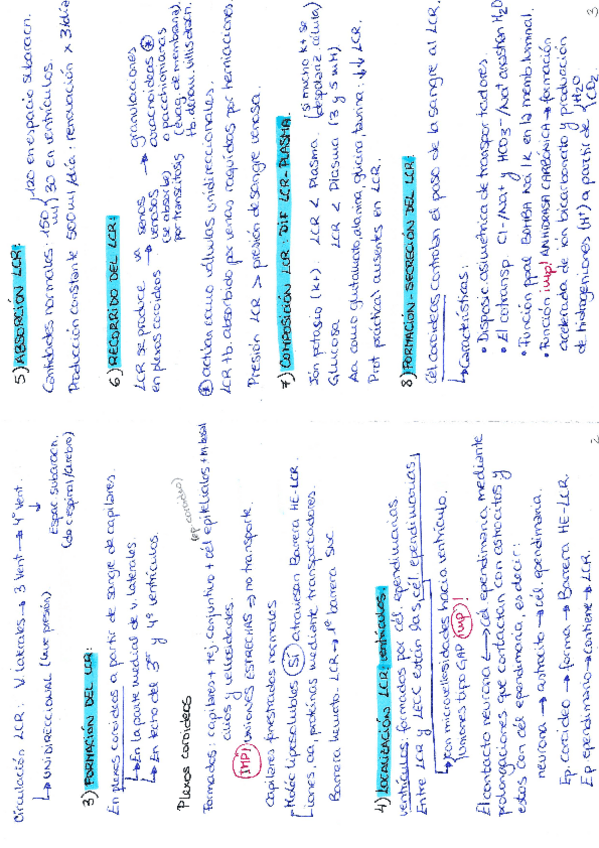 Circulación LCR: V. laterales → 3 Vent → 4º Vent.
↳ UNIDIRECCIONAL (leve presión)
Espac subaracn.
(do c espinal/cerebro)
3) FORMACIÓN DEL LCR:
En plexos coroideos a partir de sangre de capilares.
↳ En la parte medial de v. laterales
↳ En techo del 3er y 4º ventrículos.
Plexos coroideos
(ep coroideo)
Formados: capilares + tej. conjuntivo + cél epiteliales + m basal
cilios y vellosidades.
IMP! UNIONES ESTRECHAS ⇒ no transporte.
Capilares fenestrados normales
Moléc liposolubles SÍ atraviesan Barrera HE-LCR.
Iones, aa, proteínas mediante transportadores.
Barrera hemato-LCR → 1ª barrera SNC
4) LOCALIZACIÓN LCR: ventrículos.
ventrículos: formados por cél ependimarias.
Entre LCR y LECC están las cél. ependimarias
↳ con microvellosidades hacia ventrículo.
Uniones tipo GAP imp!
El contacto neurona ↔ cél ependimaria, mediante
prolongaciones que contactan con astrocitos y
estos con cél ependimaria, es decir:
neurona → astrocito → cél. ependimaria.
Ep. coroideo → forma → Barrera HE-LCR.
Ep ependimario → contiene → LCR.
2
5) ABSORCIÓN LCR:
Cantidades normales: 150 ml
120 en espacio subaracn.
30 en ventrículos.
Producción constante 500ml/día: renovación x 3/día
6) RECORRIDO DEL LCR:
LCR se produce en plexos coroideos → va senos venosos (se absorbe) por transcitosis → granulaciones aracnoideas ⊛ o pacchionianas
(evag. de membrana).
⊛ actúan como válvulas unidireccionales.
LCR tb absorbido por venas raquídeas por herniaciones.
Presión LCR > presión de sangre venosa.
7) COMPOSICIÓN LCR: DIF LCR-PLASMA.
Ión potasio (K+). LCR < Plasma. (si mucho K+ se despolariz. célula)
Glucosa LCR < Plasma (3 y 5 mM)
Aa como glutamato, alanina, glicina, taurina: ↓↓ LCR.
Prot práctical ausentes en LCR.
8) FORMACIÓN-SECRECIÓN DEL LCR:
Cél coroideas controlan el paso de la sangre al LCR.
↳ Características:
• Disposic. asimétrica de transportadores.
• El cotransp Cl-/Na+ y HCO3-/Na+ arrastran H2O
• Función ppal BOMBA Na/K en la memb luminal.
• Función imp! ANHIDRASA CARBÓNICA → formación
acelerada de ión bicarbonato y producción
de hidrogeniones (H+) a partir de H2O y CO2.
3